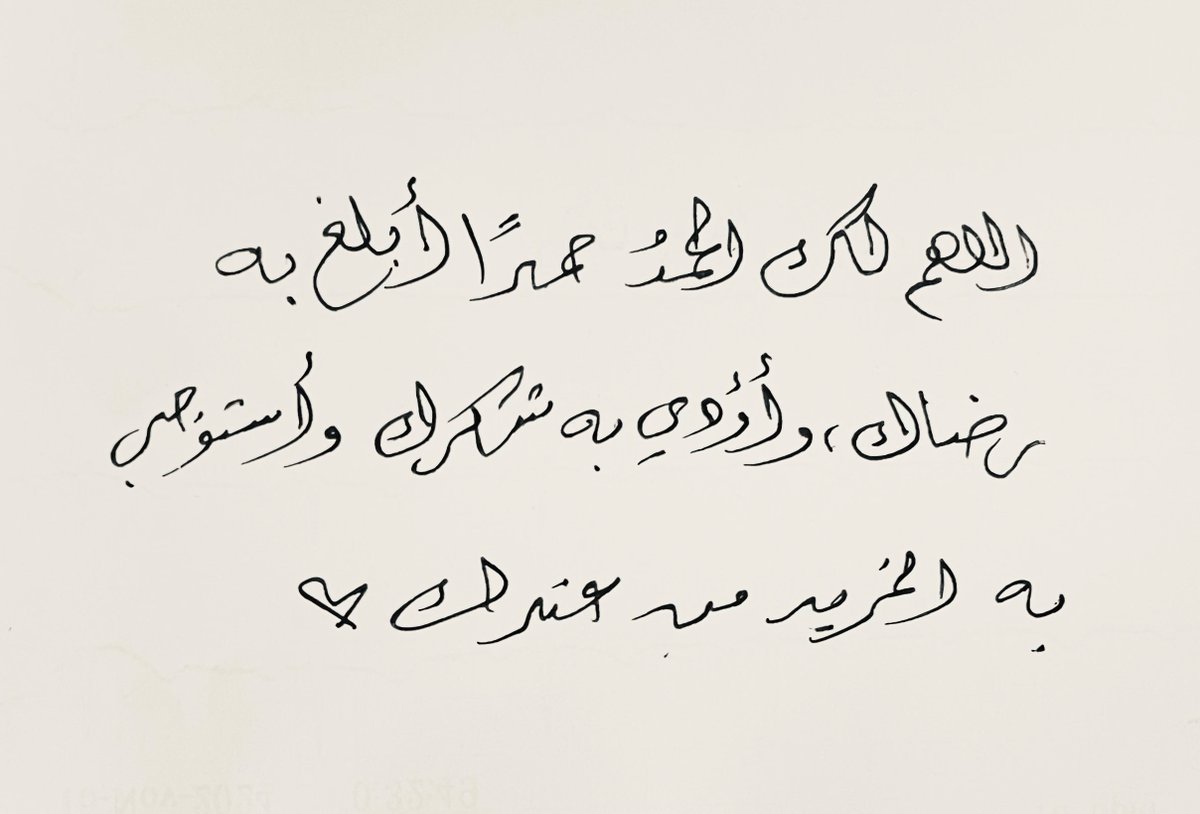 اللهم لك الحمدُ حمدًا أبلغ به
رضاك، وأؤدي به شكرك وأستوجب
به المزيد من عندك ♡